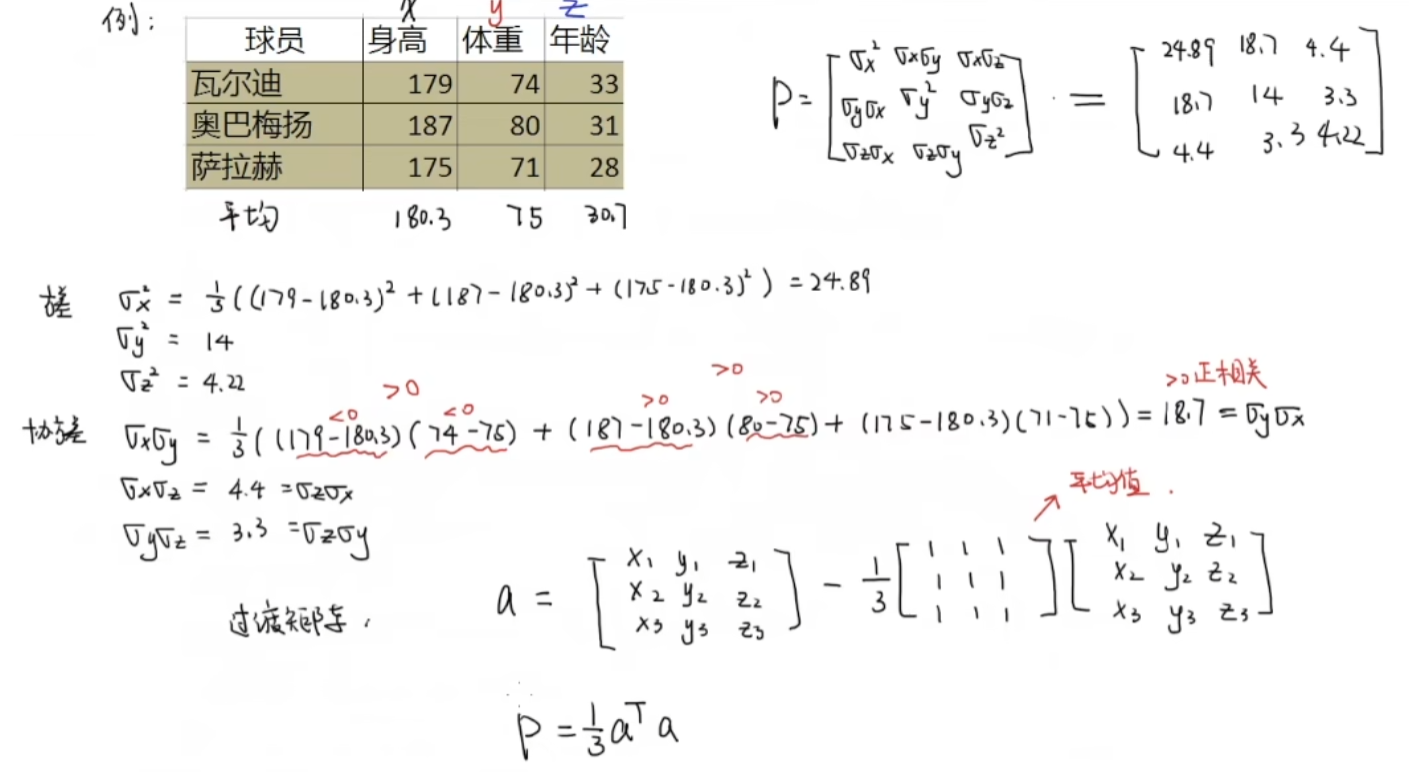 例：
x y z
球员 身高 体重 年龄
瓦尔迪 179 74 33
奥巴梅扬 187 80 31
萨拉赫 175 71 28
平均 180.3 75 30.7
P = [ σx² σxσy σxσz ; σyσx σy² σyσz ; σzσx σzσy σz² ] = [ 24.89 18.7 4.4 ; 18.7 14 3.3 ; 4.4 3.3 4.22 ]
方差 σx² = 1/3 ((179-180.3)² + (187-180.3)² + (175-180.3)²) = 24.89
σy² = 14
σz² = 4.22
>0 >0
<0 <0 >0 >0 >0正相关
协方差 σxσy = 1/3 ((179-180.3)(74-75) + (187-180.3)(80-75) + (175-180.3)(71-75)) = 18.7 = σyσx
σxσz = 4.4 = σzσx
σyσz = 3.3 = σzσy
平均值.
过渡矩阵. a = [ x1 y1 z1 ; x2 y2 z2 ; x3 y3 z3 ] - 1/3 [ 1 1 1 ; 1 1 1 ; 1 1 1 ] [ x1 y1 z1 ; x2 y2 z2 ; x3 y3 z3 ]
P = 1/3 aᵀ a